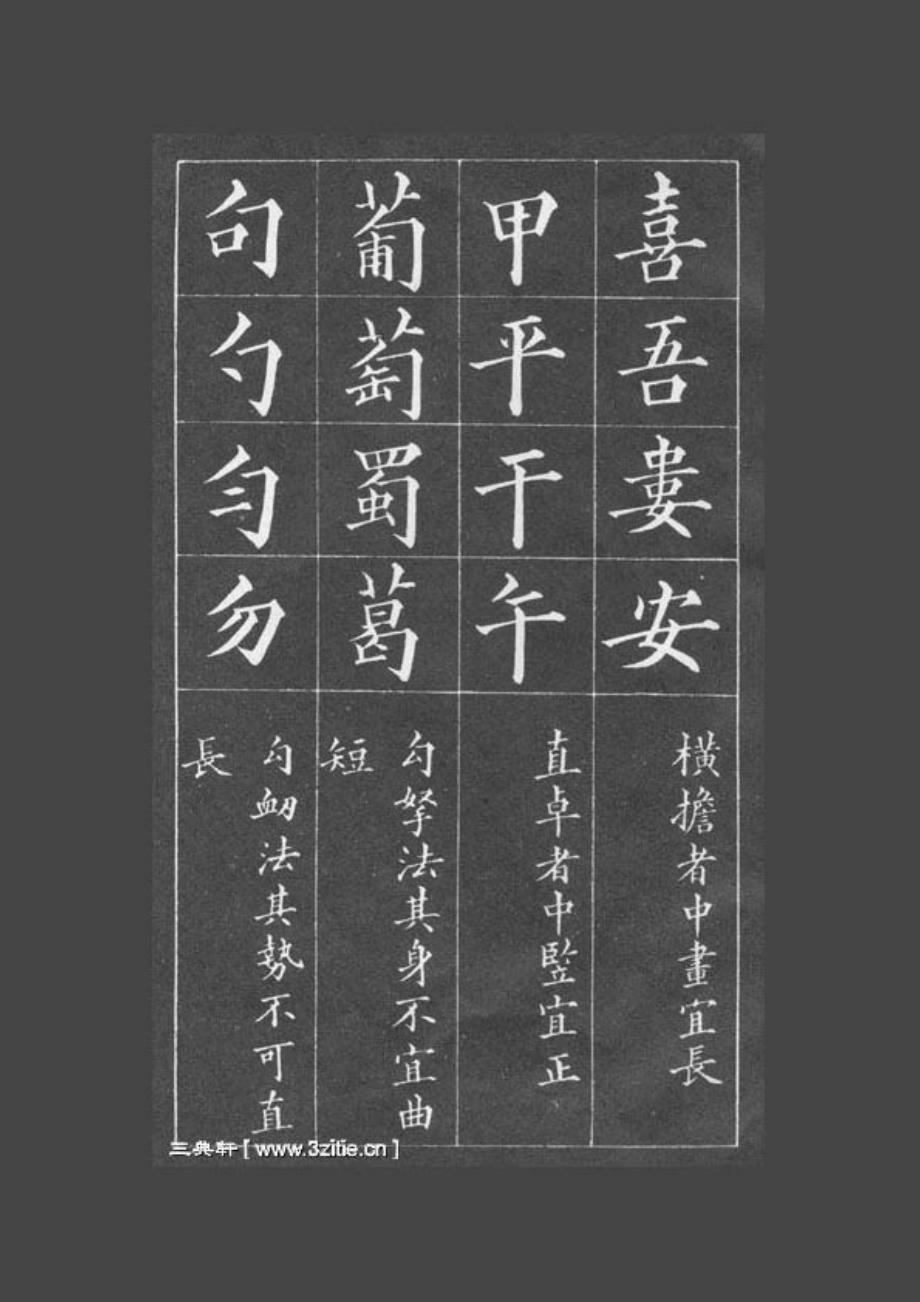 喜吾婁安
橫擔者中畫宜長
甲平干午
直卓者中豎宜正
葡萄蜀葛
勾拏法其身不宜曲
短
句勺勻勿
勾衂法其勢不可直
長
三典轩 [ www.3zitie.cn ]